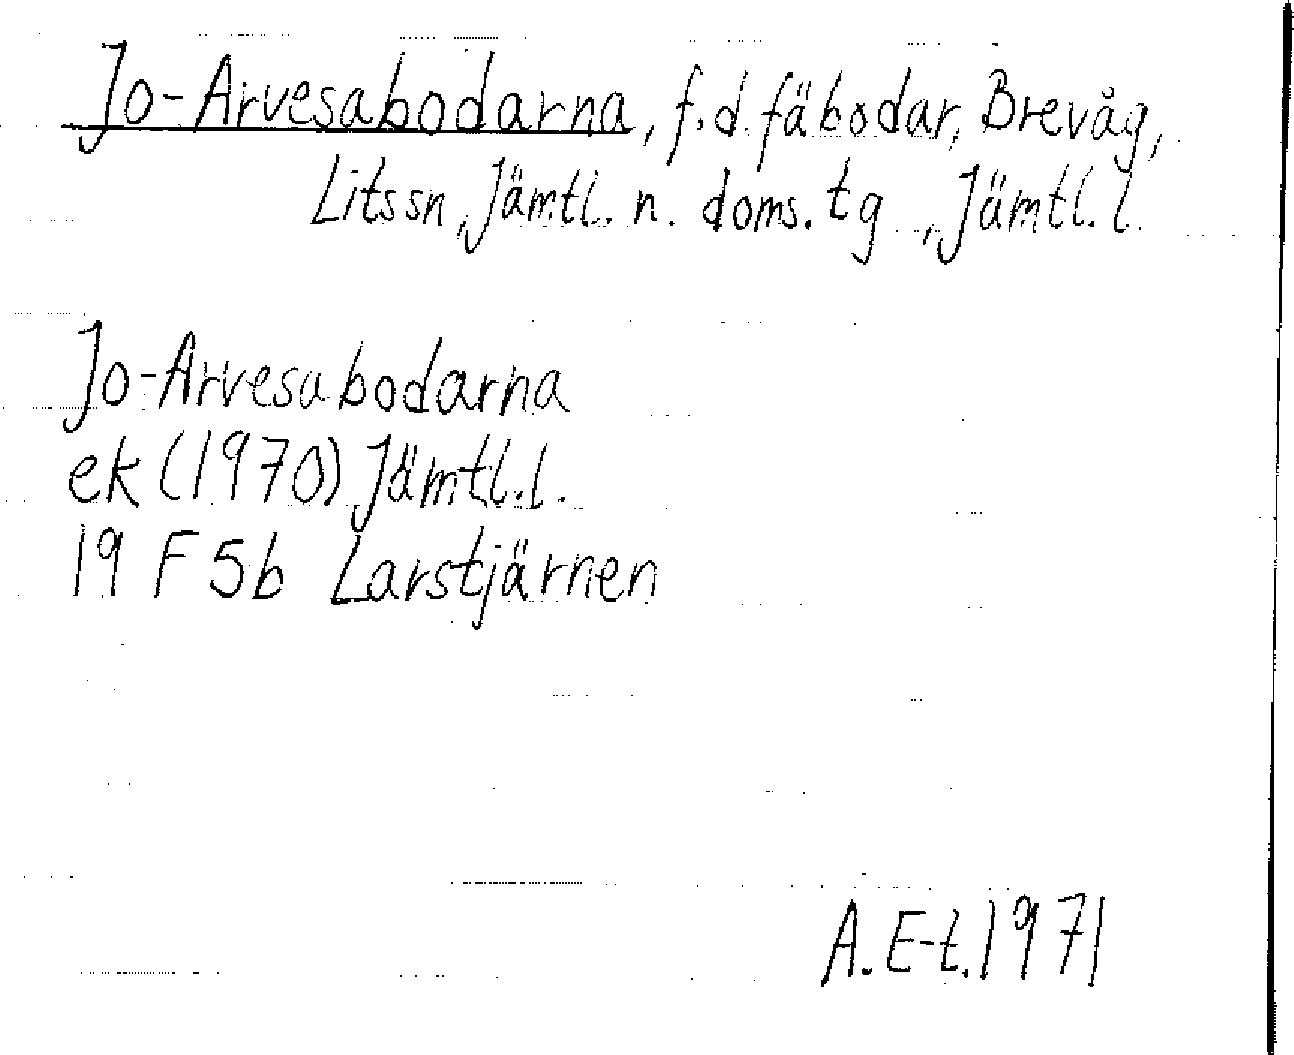 Jo-Arvesabodarna, f.d. fäbodar, Brevåg,
Lits sn, Jämtl. n. doms. tg, Jämtl. l.
Jo-Arvesabodarna
ek (1970) Jämtl. l.
19 F 5b Larstjärnen
A. E-t. 1971